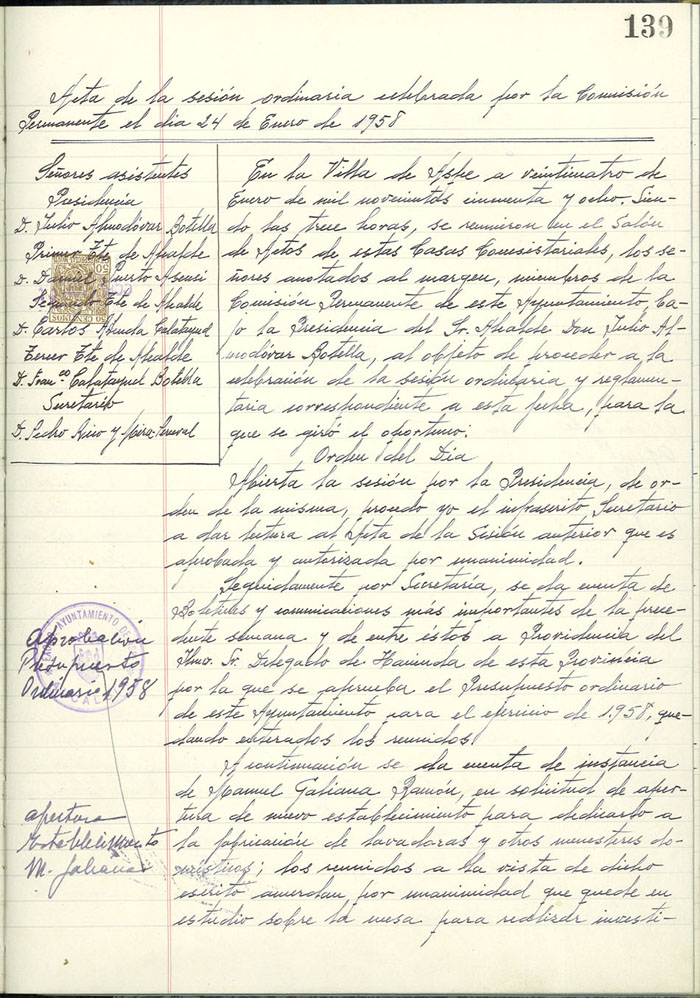 139
Acta de la sesión ordinaria celebrada por la Comisión
Permanente el dia 24 de Enero de 1958
Señores asistentes
Presidencia
D. Julio Almodóvar Botella
Primer Tte de Alcalde
D. Daniel Puerto Asensi
Segundo Tte de Alcalde
D. Carlos Abenda Calatayud
Tercer Tte de Alcalde
D. Fran.co Calatayud Botella
Secretario
D. Pedro Rico y Mira-Perceval
En la Villa de Aspe a veinticuatro de
Enero de mil novecientos cincuenta y ocho. Sien-
do las trece horas, se reunieron en el Salón
de Actos de estas Casas Consistoriales, los se-
ñores anotados al margen, miembros de la
Comisión Permanente de este Ayuntamiento, ba-
jo la Presidencia del Sr. Alcalde Don Julio Al-
modóvar Botella, al objeto de proceder a la
celebración de la sesión ordinaria y reglamen-
taria correspondiente a esta fecha, para la
que se giró el oportuno:
Orden del Dia
Abierta la sesión por la Presidencia, de or-
den de la misma, procedo yo el infrascrito Secretario
a dar lectura al Acta de la Sesión anterior que es
aprobada y autorizada por unanimidad.
Seguidamente por Secretaria, se da cuenta de
Boletines y comunicaciones más importantes de la prece-
dente semana y de entre éstos a Providencia del
Ilmo. Sr. Delegado de Hacienda de esta Provincia
por la que se aprueba el Presupuesto ordinario
de este Ayuntamiento para el ejercicio de 1.958, que-
dando enterados los reunidos.
Aprobación
Presupuesto
Ordinario 1958
AYUNTAMIENTO DE
A continuación se da cuenta de instancia
de Manuel Galiana Ramón, en solicitud de aper-
tura de nuevo establecimiento para dedicarlo a
la fabricación de lavadoras y otros menesteres do-
mésticos; los reunidos a la vista de dicho
escrito acuerdan por unanimidad que quede en
estudio sobre la mesa para realizar investi-
apertura
establecimiento
M. Galiana